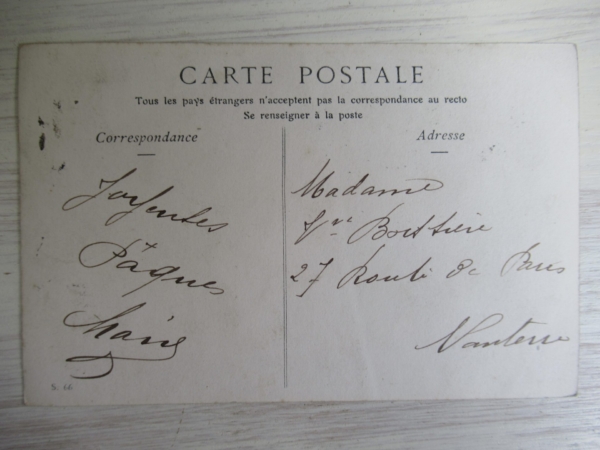 CARTE POSTALE
Tous les pays étrangers n'acceptent pas la correspondance au recto
Se renseigner à la poste
Correspondance
Adresse
Joyeuses
Pâques
Marie
Madame
Vve
27 Route de Paris
Nanterre